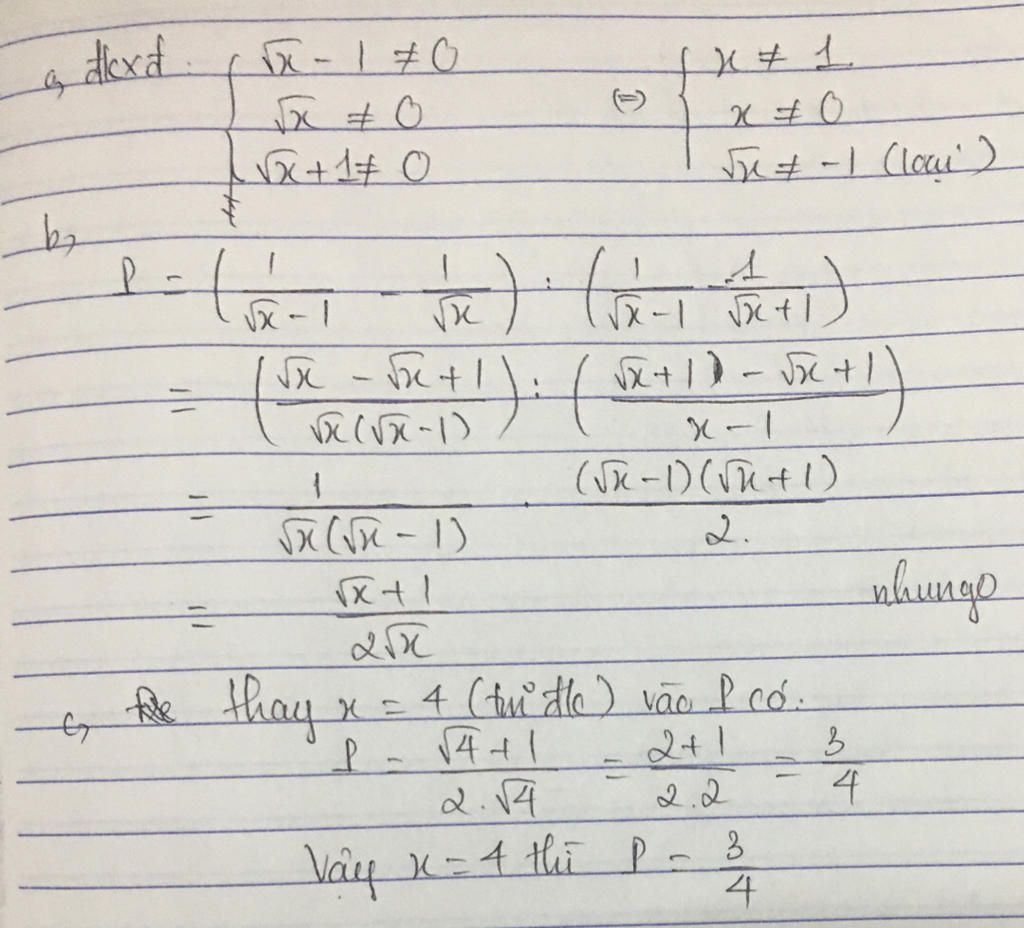 a, đkxđ: { √x - 1 ≠ 0 (=) { x ≠ 1
√x ≠ 0 x ≠ 0
√x + 1 ≠ 0 √x ≠ -1 (loại)
b,
P = (1/(√x - 1) - 1/√x) : (1/(√x - 1) - 1/(√x + 1))
= ((√x - √x + 1)/(√x(√x - 1))) : ((√x + 1) - √x + 1)/(x - 1))
= 1/(√x(√x - 1)) . ((√x - 1)(√x + 1))/2.
= (√x + 1)/(2√x) nhungo
c, thay x = 4 (tm đk) vào P có:
P = (√4 + 1)/(2.√4) = (2 + 1)/(2.2) = 3/4
Vậy x = 4 thì P = 3/4